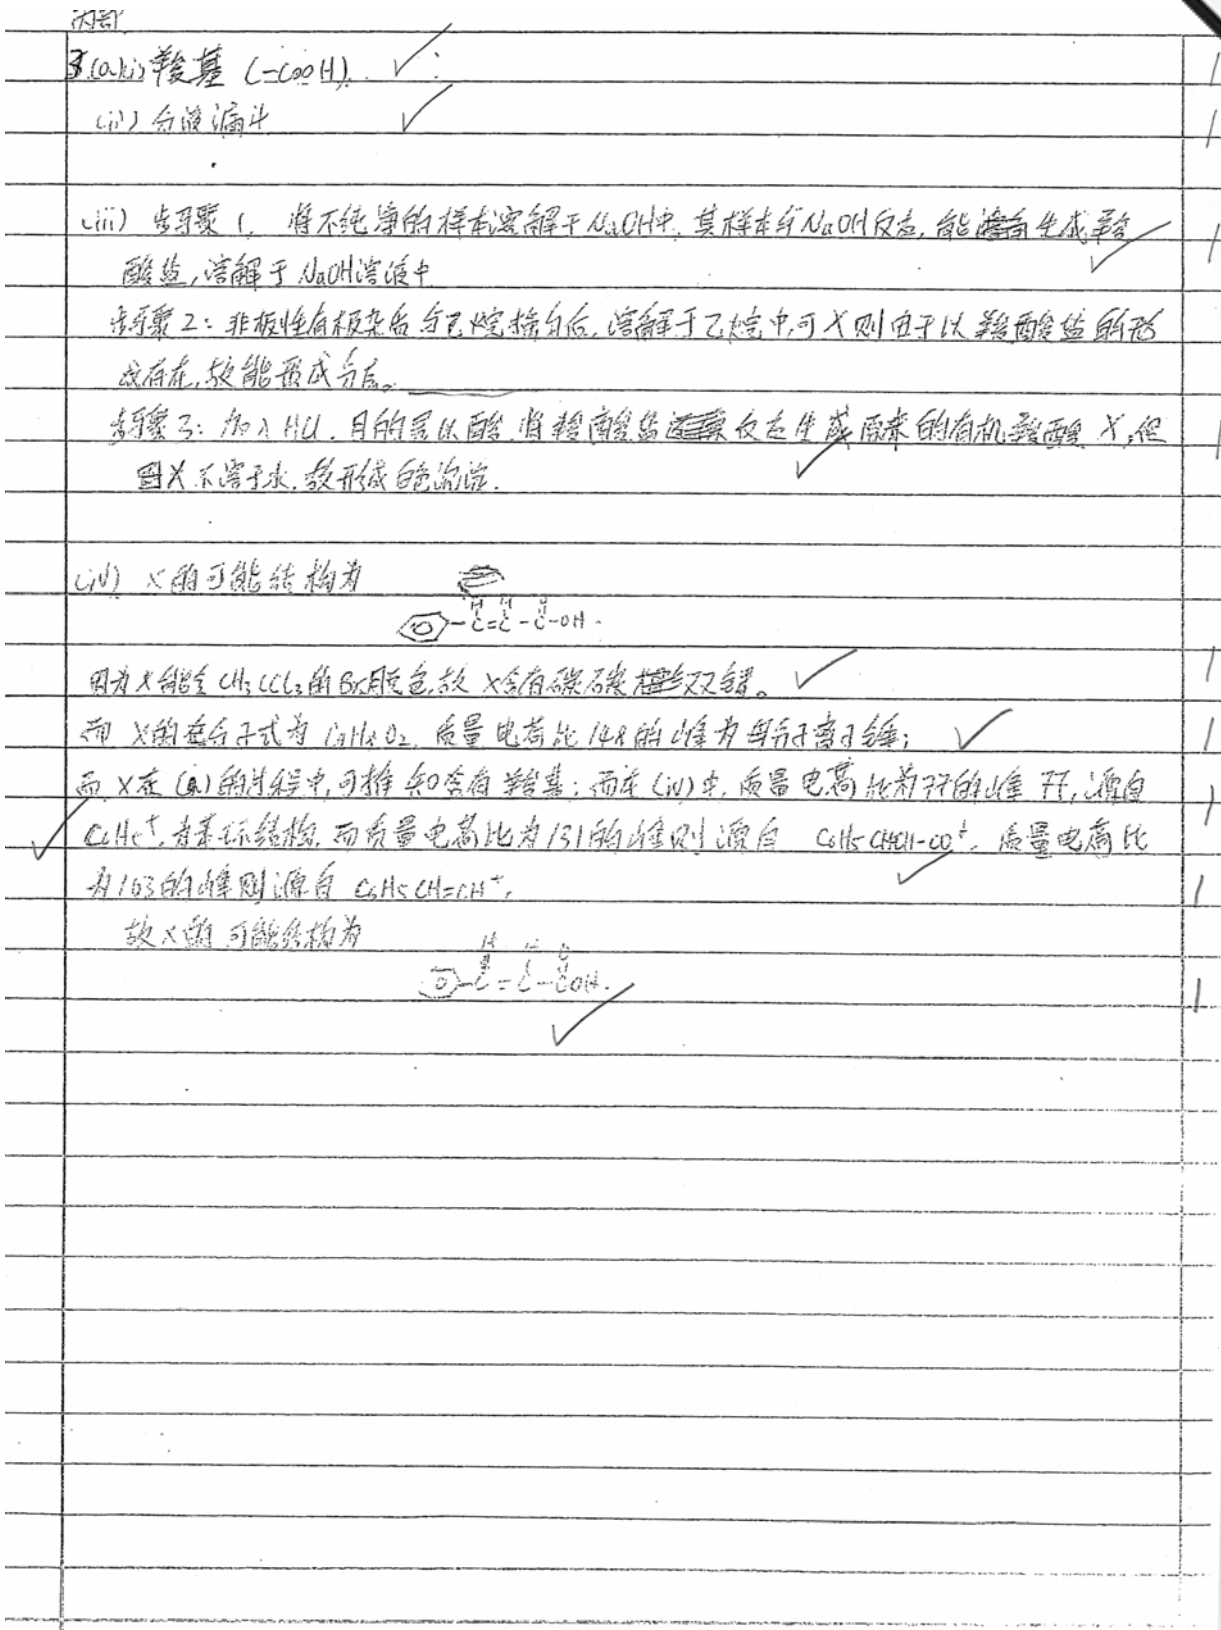 丙部
3.(a)(i) 羧基 (-COOH).
(ii) 分液漏斗
(iii) 步骤 1. 将不纯净的样本溶解于NaOH中. 其样本与NaOH反应, 能生成羧
酸盐, 溶解于NaOH溶液中
步骤 2: 非极性有机杂质与己烷混合后, 溶解于己烷中, 可X则由于以羧酸盐的形
式存在, 故能形成分层。
步骤 3: 加入 HCl. 目的是以酸 将羧酸盐反应生成原来的有机羧酸 X, 但
因X不溶于水, 故形成白色沉淀.
(iv) X的可能结构为
H H O
-C=C-C-OH.
因为X能令CH₃CCl₃的Br₂脱色, 故 X含有碳碳双键。
而 X的分子式为 C₉H₈O₂. 质量电荷比148的峰为母分子离子峰;
而 X在 (a) 的过程中, 可推知含有羧基; 而在(iv)中, 质量电荷比为77的峰 77, 源自
C₆H₅⁺, 为苯环结构, 而质量电荷比为131的峰则源自 C₆H₅CHCH-CO⁺. 质量电荷比
为103的峰则源自 C₆H₅CH=CH⁺,
故X的可能结构为
H H O
-C=C-COH.
1
1
1
1
1
1
1
1
1